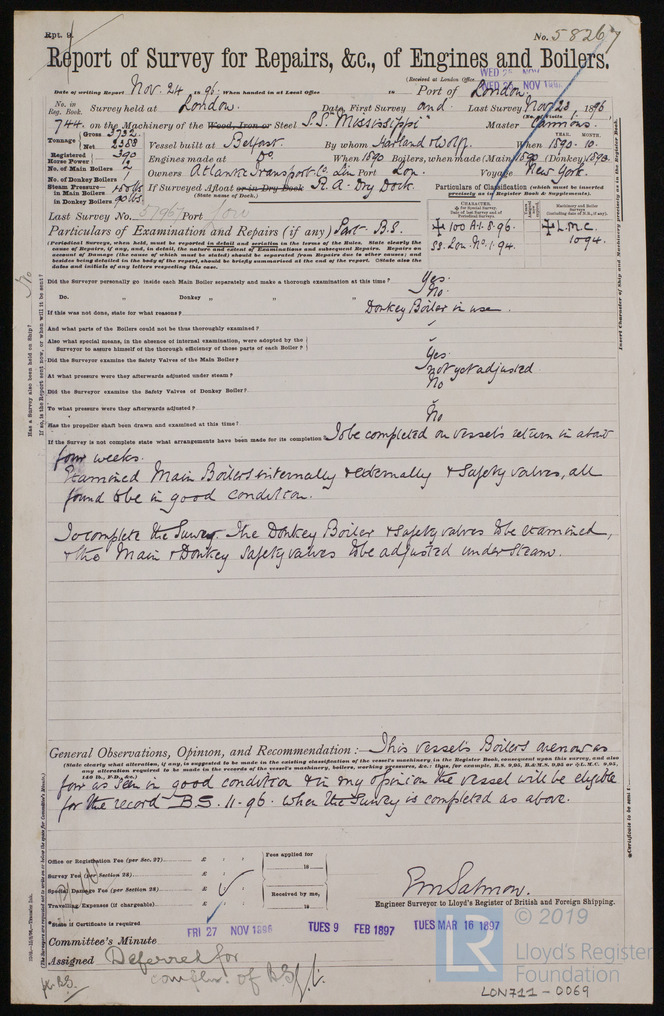 Rpt. 9.
No. 58267
Report of Survey for Repairs, &c., of Engines and Boilers.
(Received at London Office
WED 25 NOV 1896
Date of writing Report Nov. 24 1896. When handed in at Local Office Port of London.
No. in Reg. Book. Survey held at London. Date, First Survey and Last Survey Nov 23 1896
744. on the Machinery of the Wood, Iron or Steel S.S. "Mississippi" Master Cannons.
Tonnage Gross 3732 Net 2388 Vessel built at Belfast. By whom Harland & Wolff. When 1890. 10.
Registered Horse Power 390 Engines made at Do. When 1890 Boilers, when made (Main) 1890 (Donkey) 1890.
No. of Main Boilers 2 Owners Atlantic Transport Co. Lim. Port Lon. Voyage New York.
No. of Donkey Boilers
Steam Pressure in Main Boilers
in Donkey Boilers 90 lbs
If Surveyed Afloat or in Dry Dock R. A. Dry Dock.
(State name of Dock.)
Particulars of Classification (which must be inserted precisely as in Register Book & Supplements).
Last Survey No. Port
Particulars of Examination and Repairs (if any) Part B.S.
100 A.1. 8. 96.
SS. Lon. No. 1. 94.
L.M.C. 10 94.
(Periodical Surveys, when held, must be reported in detail and seriatim in the terms of the Rules. State clearly the
cause of Repairs, if any, and, in detail, the nature and extent of Examinations and subsequent Repairs. Repairs on
account of Damage (the cause of which must be stated) should be separated from Repairs due to other causes; and
besides being detailed in the body of the report, should be briefly summarised at the end of the report. State also the
dates and initials of any letters respecting this case.)
Did the Surveyor personally go inside each Main Boiler separately and make a thorough examination at the time? Yes.
Do. " Donkey " " " No.
If this was not done, state for what reasons? Donkey Boiler in use.
And what parts of the Boilers could not be thus thoroughly examined?
Also what special means, in the absence of internal examination, were adopted by the
Surveyor to assure himself of the thorough efficiency of those parts of each Boiler?
Did the Surveyor examine the Safety Valves of the Main Boiler? Yes
At what pressure were they afterwards adjusted under steam? not yet adjusted.
Did the Surveyor examine the Safety Valves of Donkey Boiler? No
To what pressure were they afterwards adjusted?
Has the propeller shaft been drawn and examined at this time? No
If the Survey is not complete state what arrangements have been made for its completion To be completed on vessel's return in about
four weeks.
Examined Main Boilers internally & externally & safety valves, all
found to be in good condition.
To complete the Survey. The Donkey Boiler & safety valves to be examined,
& the Main & Donkey safety valves to be adjusted under steam.
General Observations, Opinion, and Recommendation:— This vessel's Boilers are now as
(State clearly what alteration, if any, is suggested to be made in the existing classification of the vessel's machinery in the Register Book, consequent upon this survey, and also
any alteration required to be made in the records of the vessel's machinery, boilers, working pressures, &c.; thus, for example, B.S. 9,95, B.&M.S. 9,95 or L.M.C. 9,95,
140 lb., F.D., &c.)
far as seen in good condition & in my opinion the vessel will be eligible
for the record B.S. 11.96. when the Survey is completed as above.
Office or Registration Fee (per Sec. 27) £
Survey Fee (per Section 28) £
Special Damage Fee (per Section 28) £
Travelling Expenses (if chargeable) £
Fees applied for
18
Received by me,
18
Engineer Surveyor to Lloyd's Register of British and Foreign Shipping.
State if Certificate is required
FRI 27 NOV 1896
TUES 9 FEB 1897
TUES MAR 16 1897
Committee's Minute
Assigned Deferred for
complen. of BS
© 2019
LR
Lloyd's Register
Foundation
LON711-0069